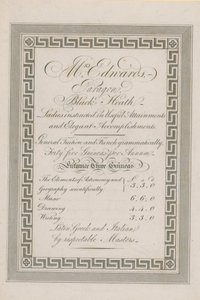 Mrs Edwards,
Paragon,
Black Heath.
Ladies instructed in Useful Attainments
and Elegant Accomplishments.
General Tuition and French grammatically,
Forty five Guineas per Annum.
Entrance Three Guineas.
The Elements of Astronomy and £ s d
Geography scientifically 3.3.0
Music 6.6.0
Drawing 4.4.0
Writing 3.3.0
Latin Greek and Italian,
by respectable Masters.